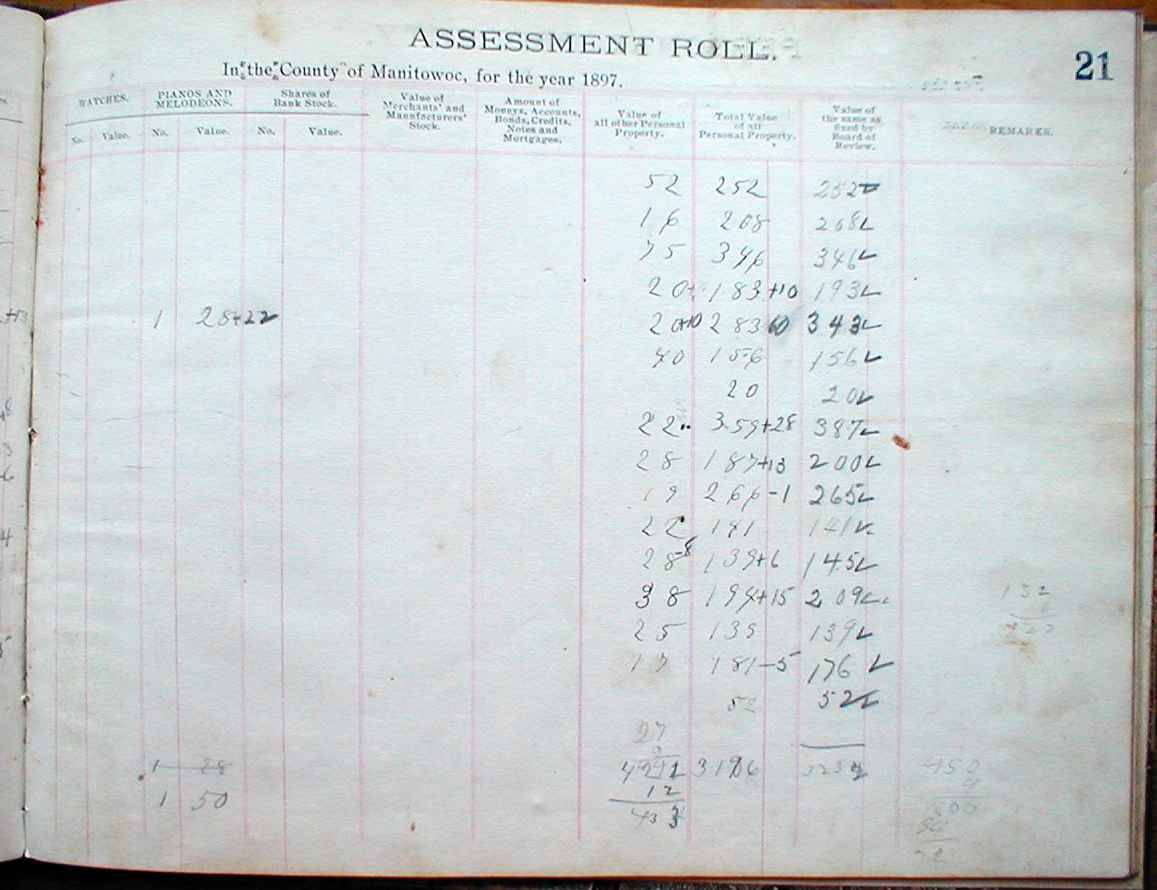 ASSESSMENT ROLL.
21
In the County of Manitowoc, for the year 1897.
WATCHES.
PIANOS AND MELODEONS.
Shares of Bank Stock.
Value of Merchants' and Manufacturers' Stock.
Amount of Moneys, Accounts, Bonds, Credits, Notes and Mortgages.
Value of all other Personal Property.
Total Value of all Personal Property.
Value of the same as fixed by Board of Review.
REMARKS.
No. Value. No. Value. No. Value.
52 252 252
16 208 208
75 346 346
20+ 183 +10 193
1 28+22 20+10 283 60 343
40 156 156
20 20
22 359+28 387
28 187+13 200
19 266-1 265
22 141 141
28 139+6 145
38 194+15 209
25 139 139
17 181-5 176
52 52
27
1 28 3186
1 50 12
433